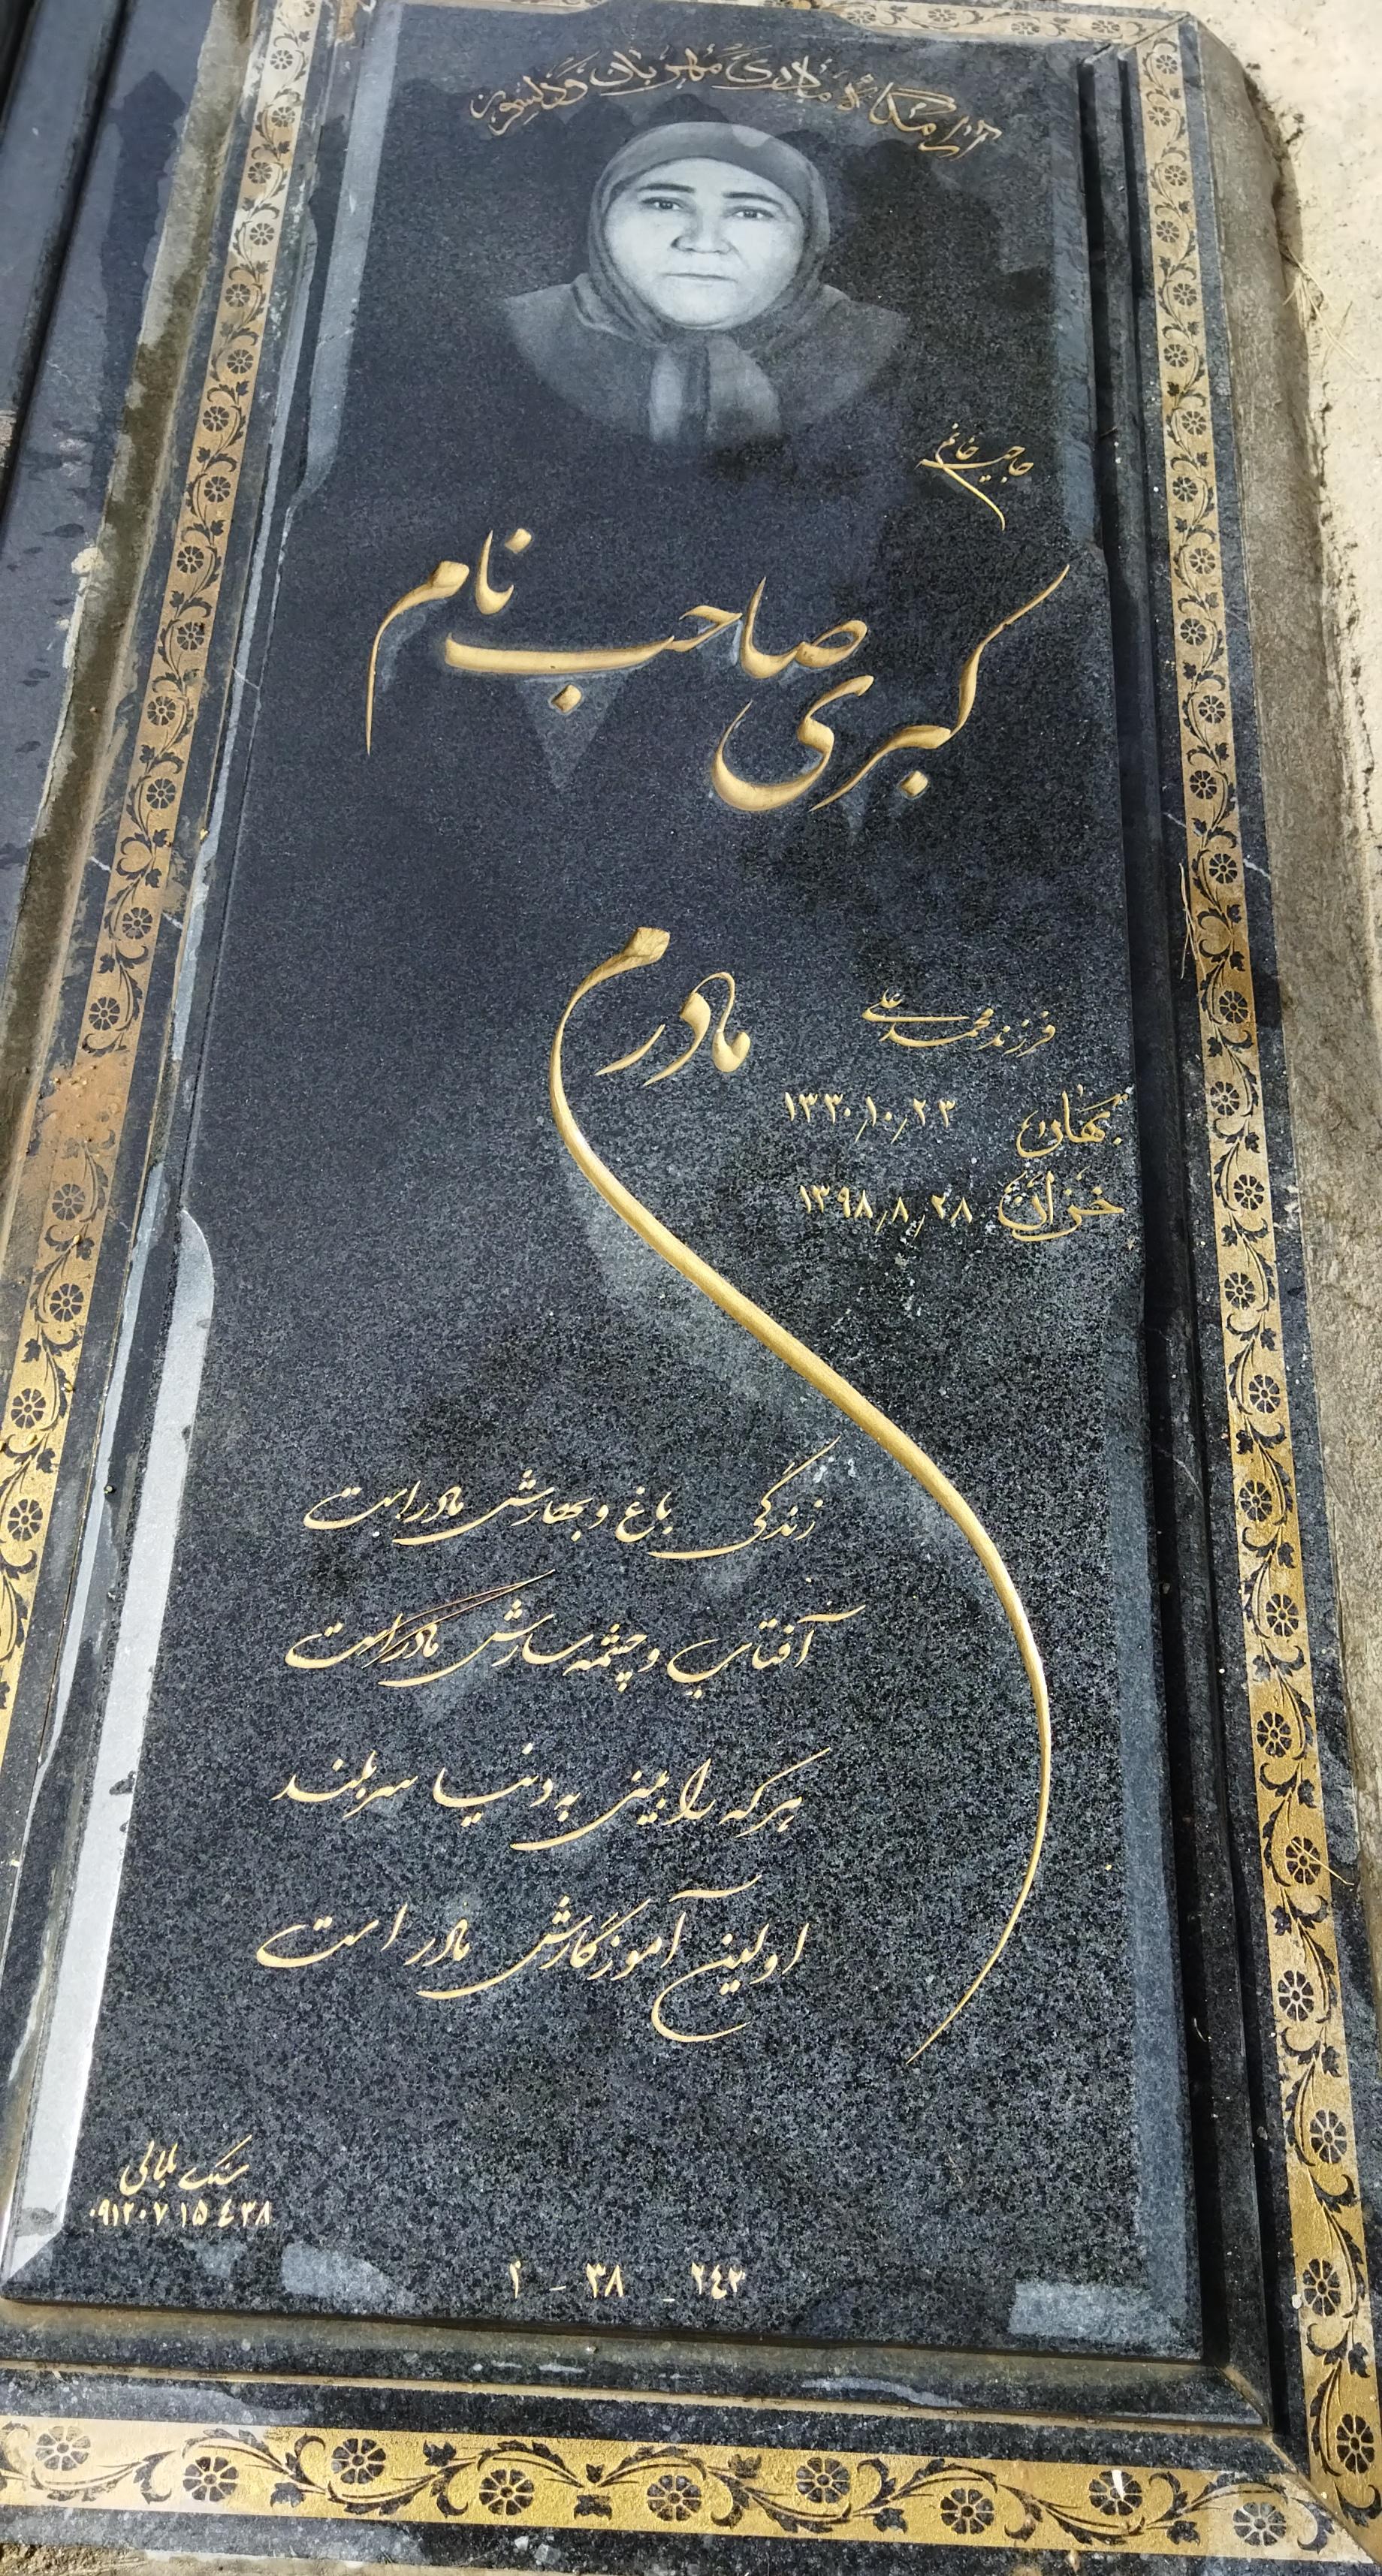 آرامگاه مادری مهربان و دلسوز
حاجیه خانم
کبری صاحب نام
مادرم
فرزند محمد علی
بهار ۱۳۳۰/۱۰/۲۳
خزان ۱۳۹۸/۸/۲۸
زندگی باغ و بهارش مادر است
آفتاب و چشمه سارش مادر است
هر که را بینی به دنیا سربلند
اولین آموزگارش مادر است
سنگ بلالی
۰۹۱۲۰۷۱۵۴۳۸
۲۴۲ - ۳۸ - ۱